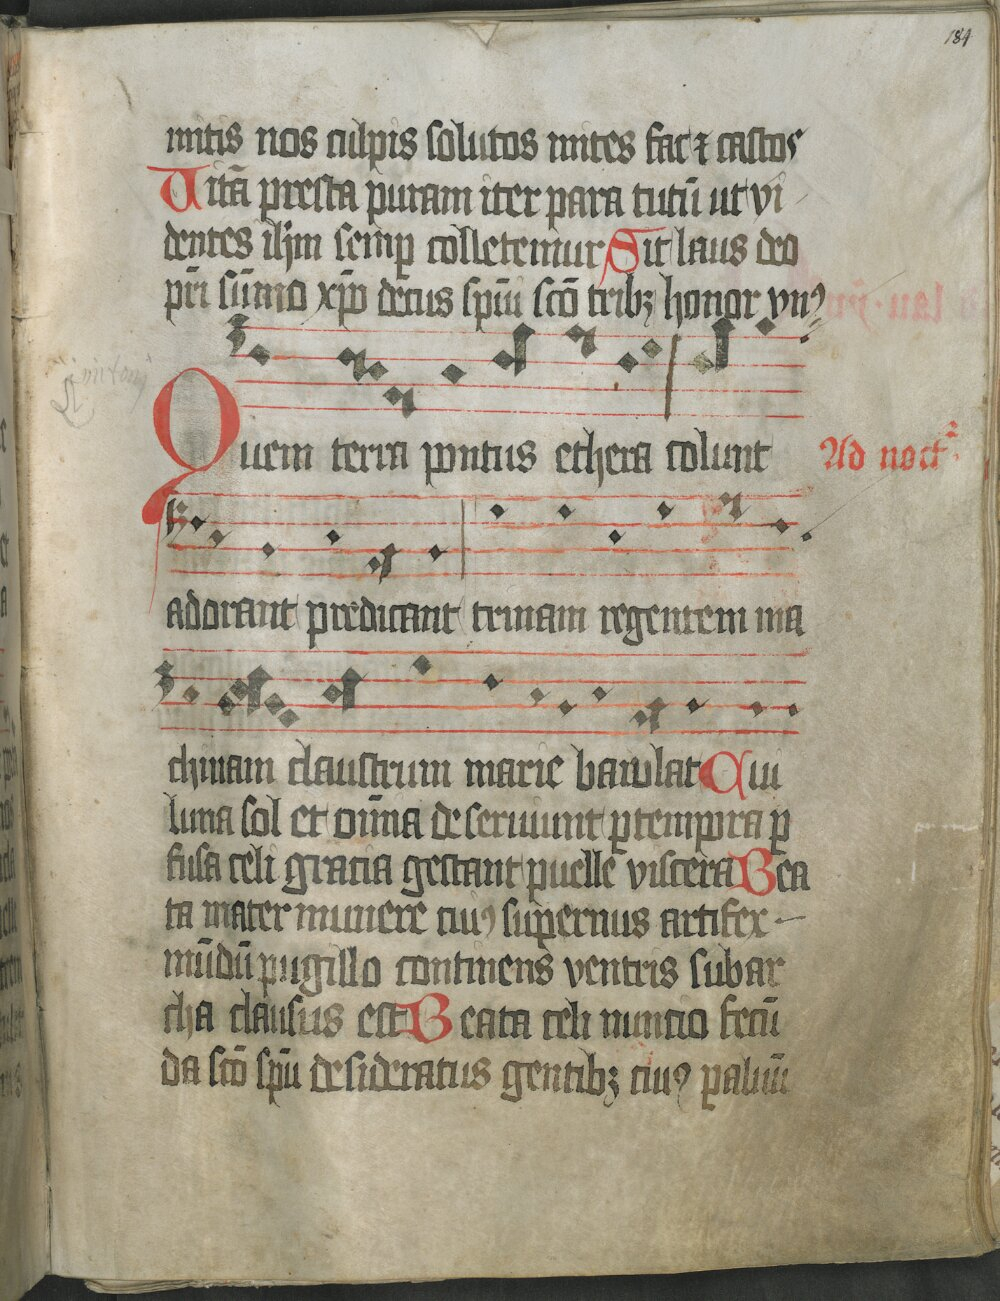 184
mitis nos culpis solutos mites fac ⁊ castos
Uitā presta puram iter para tutū ut vi
dentes ihm semꝑ colletemur Sit laus deo
pr̄i sūmo xp̄o decus spūi sc̄o tribꝫ honor vnꝰ
Quem terra pontus ethera colunt
Ad noct
adorant predicant trinam regentem ma
chinam claustrum marie baiulat Cui
luna sol et om̄ia deseruiunt ꝑ tempora ꝑ
fusa celi gracia gestant puelle viscera Bea
ta mater munere cuiꝰ supernus artifex
mūdū pugillo continens ventris sub ar
cha clausus est Beata celi nuncio fecū
da sc̄o spū desideratus gentibꝫ cuiꝰ ꝑ aluū